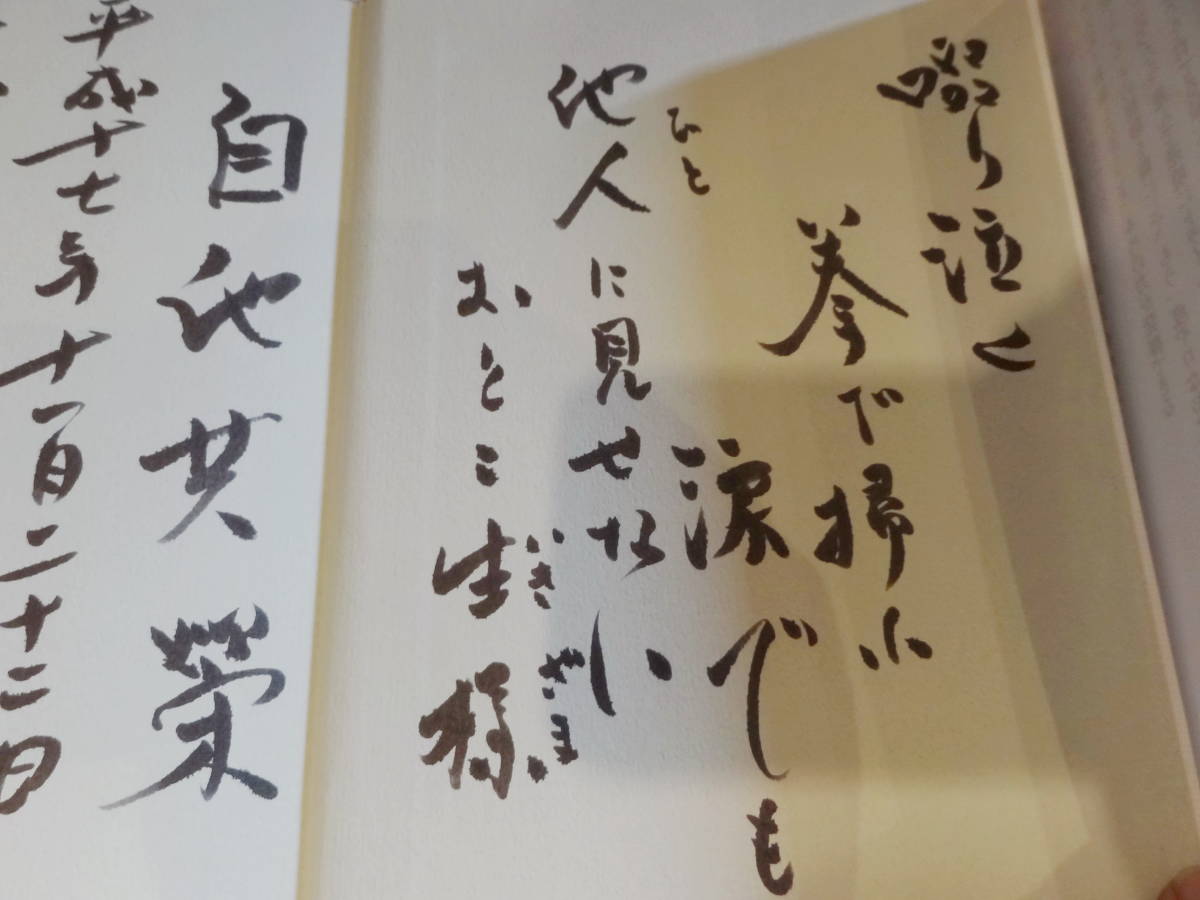 啜り泣く
拳で掃い
涙でも
ひと
他人に見せない
おとこ生様
いきざま
自他共榮
平成十七年十一月二十二日